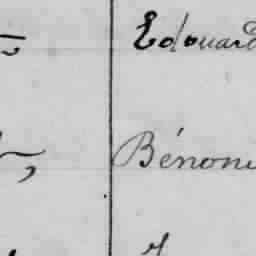 Edouard
Bénoni